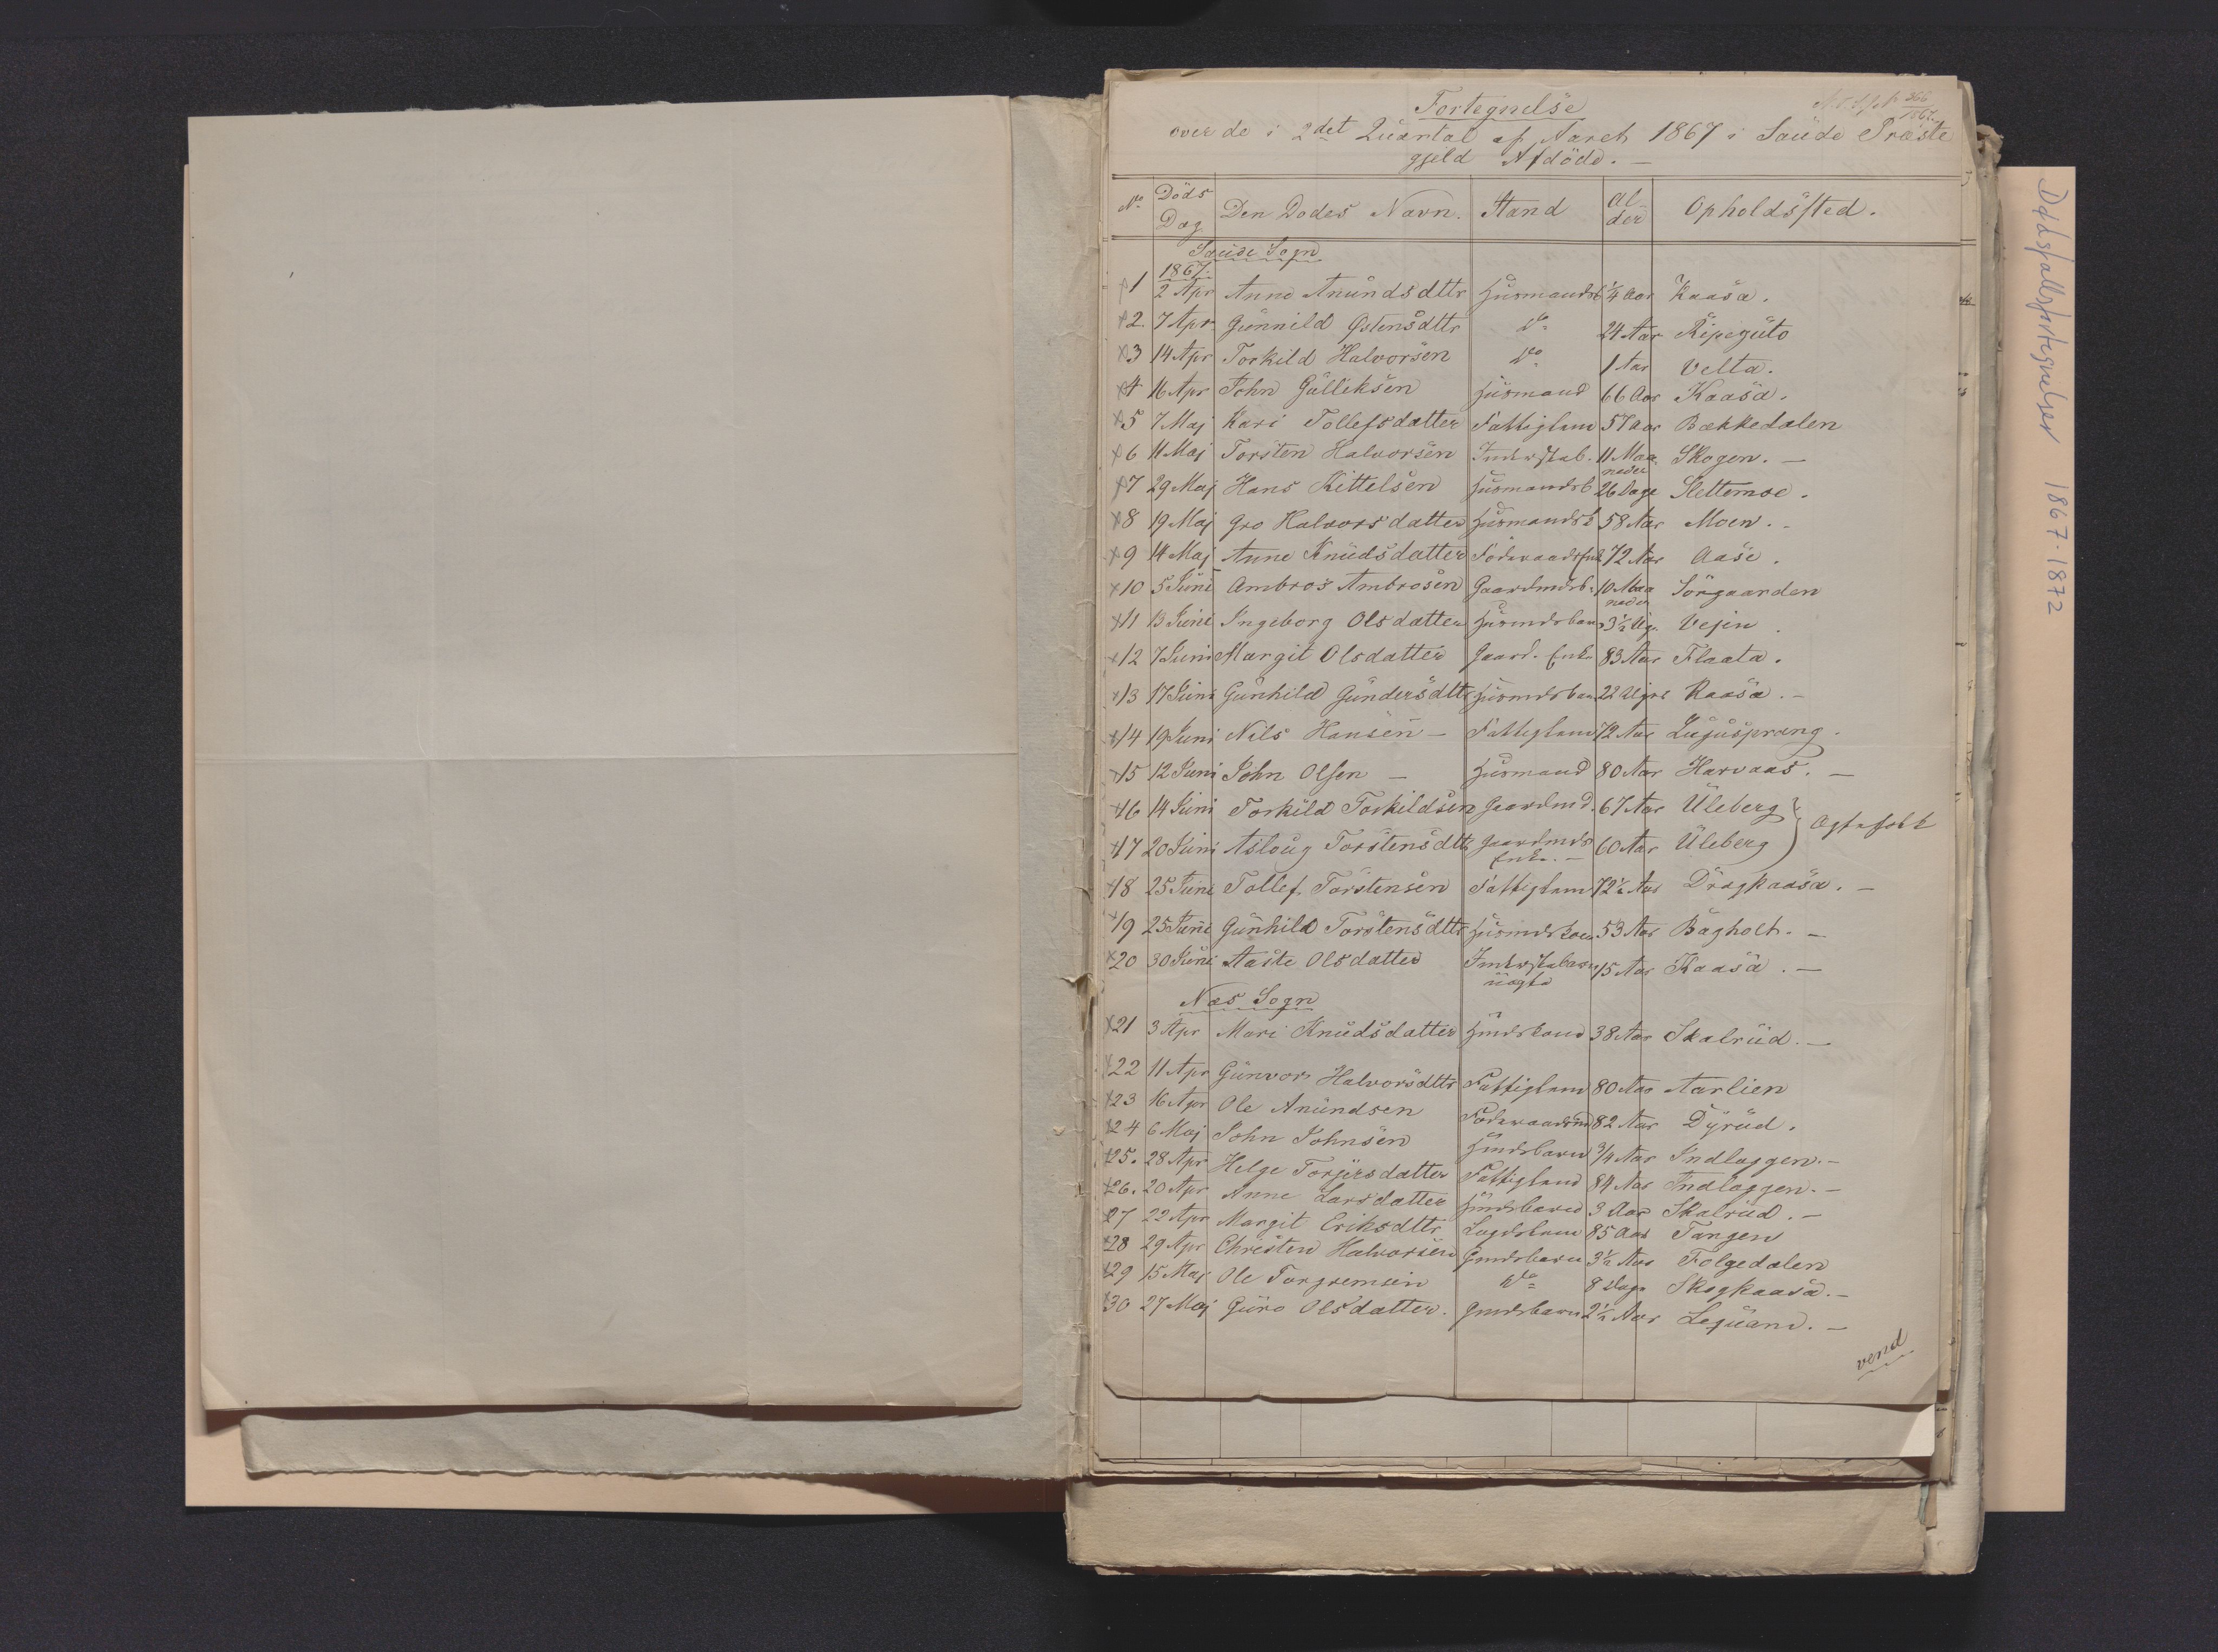 Fortegnelse
over de i 2det Quartal af Aaret 1867 i Saude Præste
gjeld Afdöde. —
No Döds Dag Den Dödes Navn. Stand Al- der Opholdssted.
Saude Sogn
1867.
1 2 Apr Anne Anundsdttr Husmandsb ¼ Aar Kaasa.
2. 7 Apr. Gunnild Østensdttr Do 24 Aar Ripeguto
3 14 Apr Torkild Halvorsen Do 1 Aar Velta.
4 16 Apr John Gulliksen Husmand 66 Aar Kaasa.
5 7 Maj Kari Tollefsdatter Fattiglem 57 Aar Bækkedalen
6 11 Maj Torsten Halvorsen Inderstsb. 11 Maa- neder Skogen. —
7 29 Maj Hans Kittelsen Husmandsb 26 Dage Slettemoe.
8 19 Maj Gro Halvorsdatter Husmandsk 58 Aar Moen. -
9 14 Maj Anne Knudsdatter Föderaadsenk 72 Aar Aase.
10 5 Juni Ambros Ambrosen Gaardmdsb. 10 Maa neder Sörgaarden
11 13 Juni Ingeborg Olsdatter Husmdsbarn 3½ Ug. Vejen.
12 7 Juni Margit Olsdatter Gaard. Enke 83 Aar Flaata.
13 17 Juni Gunhild Gundersdttr Husmdsbarn 22 Uger Kaasa. -
14 19 Juni Nils Hansen - Fattiglem 72 Aar
15 12 Juni John Olsen — Husmand 80 Aar Harvaas. —
16 14 Juni Torkild Torkildsen Gaardmd. 67 Aar Uleberg } Ægtefolk
17 20 Juni Aslaug Torstensdttr Gaardmds Enke. — 60 Aar Uleberg
18 25 Juni Tollef Torstensen Fattiglem 72½ Aar Dragkaasa. —
19 25 Juni Gunhild Torstensdttr Husmdskone 53 Aar Bagholt. —
20 30 Juni Aaste Olsdatter Inderstsbarn uægte 15 Aar Kaasa. —
Næs Sogn
21 3 Apr Mari Knudsdatter Hmdskone 38 Aar Skalrud. —
22 11 Apr Gunvor Halvorsdttr Fattiglem 80 Aar Aarlien
23 16 Apr Ole Anundsen Föderaadsmd 82 Aar Dyrud.
24 6 Maj John Johnsen Hmdsbarn ¾ Aar Indlaggen. -
25. 28 Apr Helge Torjersdatter Fattiglem 84 Aar Indlaggen. -
26. 20 Apr Anne Larsdatter Hmdsbarn 3 Aar Skalrud. -
27 22 Apr Margit Eriksdttr Lægdslem 85 Aar Tangen
28 29 Apr Christen Halvorsen Gmdsbarn 3½ Aar Folgedalen
29 15 Maj Ole Torgremsen Do 8 Dage Skogkaasa. -
30 27 Maj Guro Olsdatter. Gmdsbarn 2½ Aar —
vend
Dødsfallsfortegnelser 1867-1872